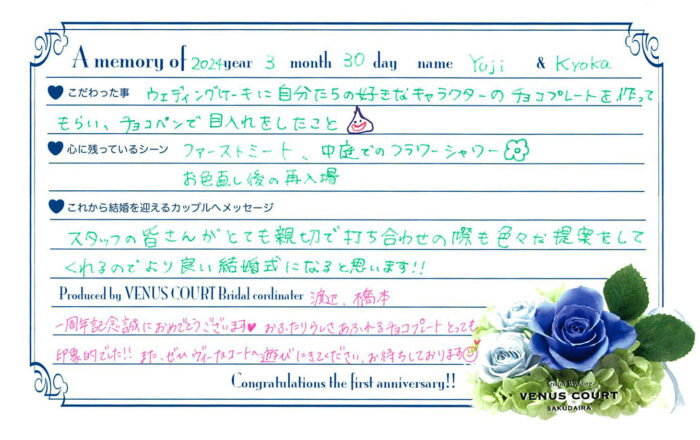 A memory of 2024 year 3 month 30 day name Yuji & Kyoka
こだわった事 ウェディングケーキに自分たちの好きなキャラクターのチョコプレートを作って
もらい、チョコペンで目入れをしたこと
心に残っているシーン ファーストミート、中庭でのフラワーシャワー
お色直し後の再入場
これから結婚を迎えるカップルへメッセージ
スタッフの皆さんがとても親切で打ち合わせの際も色々な提案をして
くれるのでより良い結婚式になると思います!!
Produced by VENUS COURT Bridal cordinater 渡辺、橋本
一周年記念誠におめでとうございます♥ おふたりらしさあふれるチョコプレートとっても
印象的でした!! また、ぜひヴィーナスコートへ遊びにきてください、お待ちしております
Congratulations the first anniversary!!
VENUS COURT
SAKUDAIRA